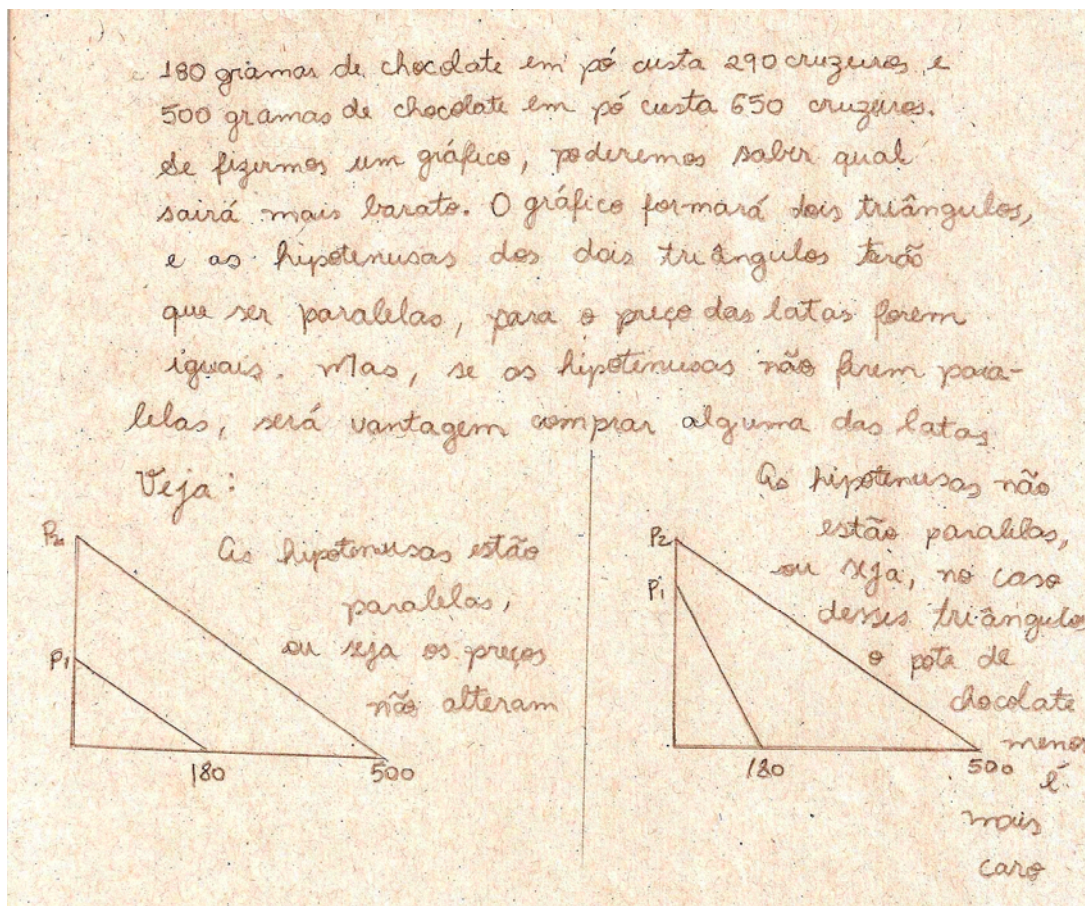 180 gramas de chocolate em pó custa 290 cruzeiros e
500 gramas de chocolate em pó custa 650 cruzeiros.
Se fizermos um gráfico, poderemos saber qual
sairá mais barato. O gráfico formará dois triângulos,
e as hipotenusas dos dois triângulos terão
que ser paralelas, para o preço das latas forem
iguais. Mas, se as hipotenusas não forem para-
lelas, será vantagem comprar alguma das latas
Veja:
P2
As hipotenusas estão
paralelas,
ou seja os preços
não alteram
P1
180
500
As hipotenusas não
estão paralelas,
ou seja, no caso
desses triângulos
o pote de
chocolate
menor
é
mais
caro
P2
P1
180
500